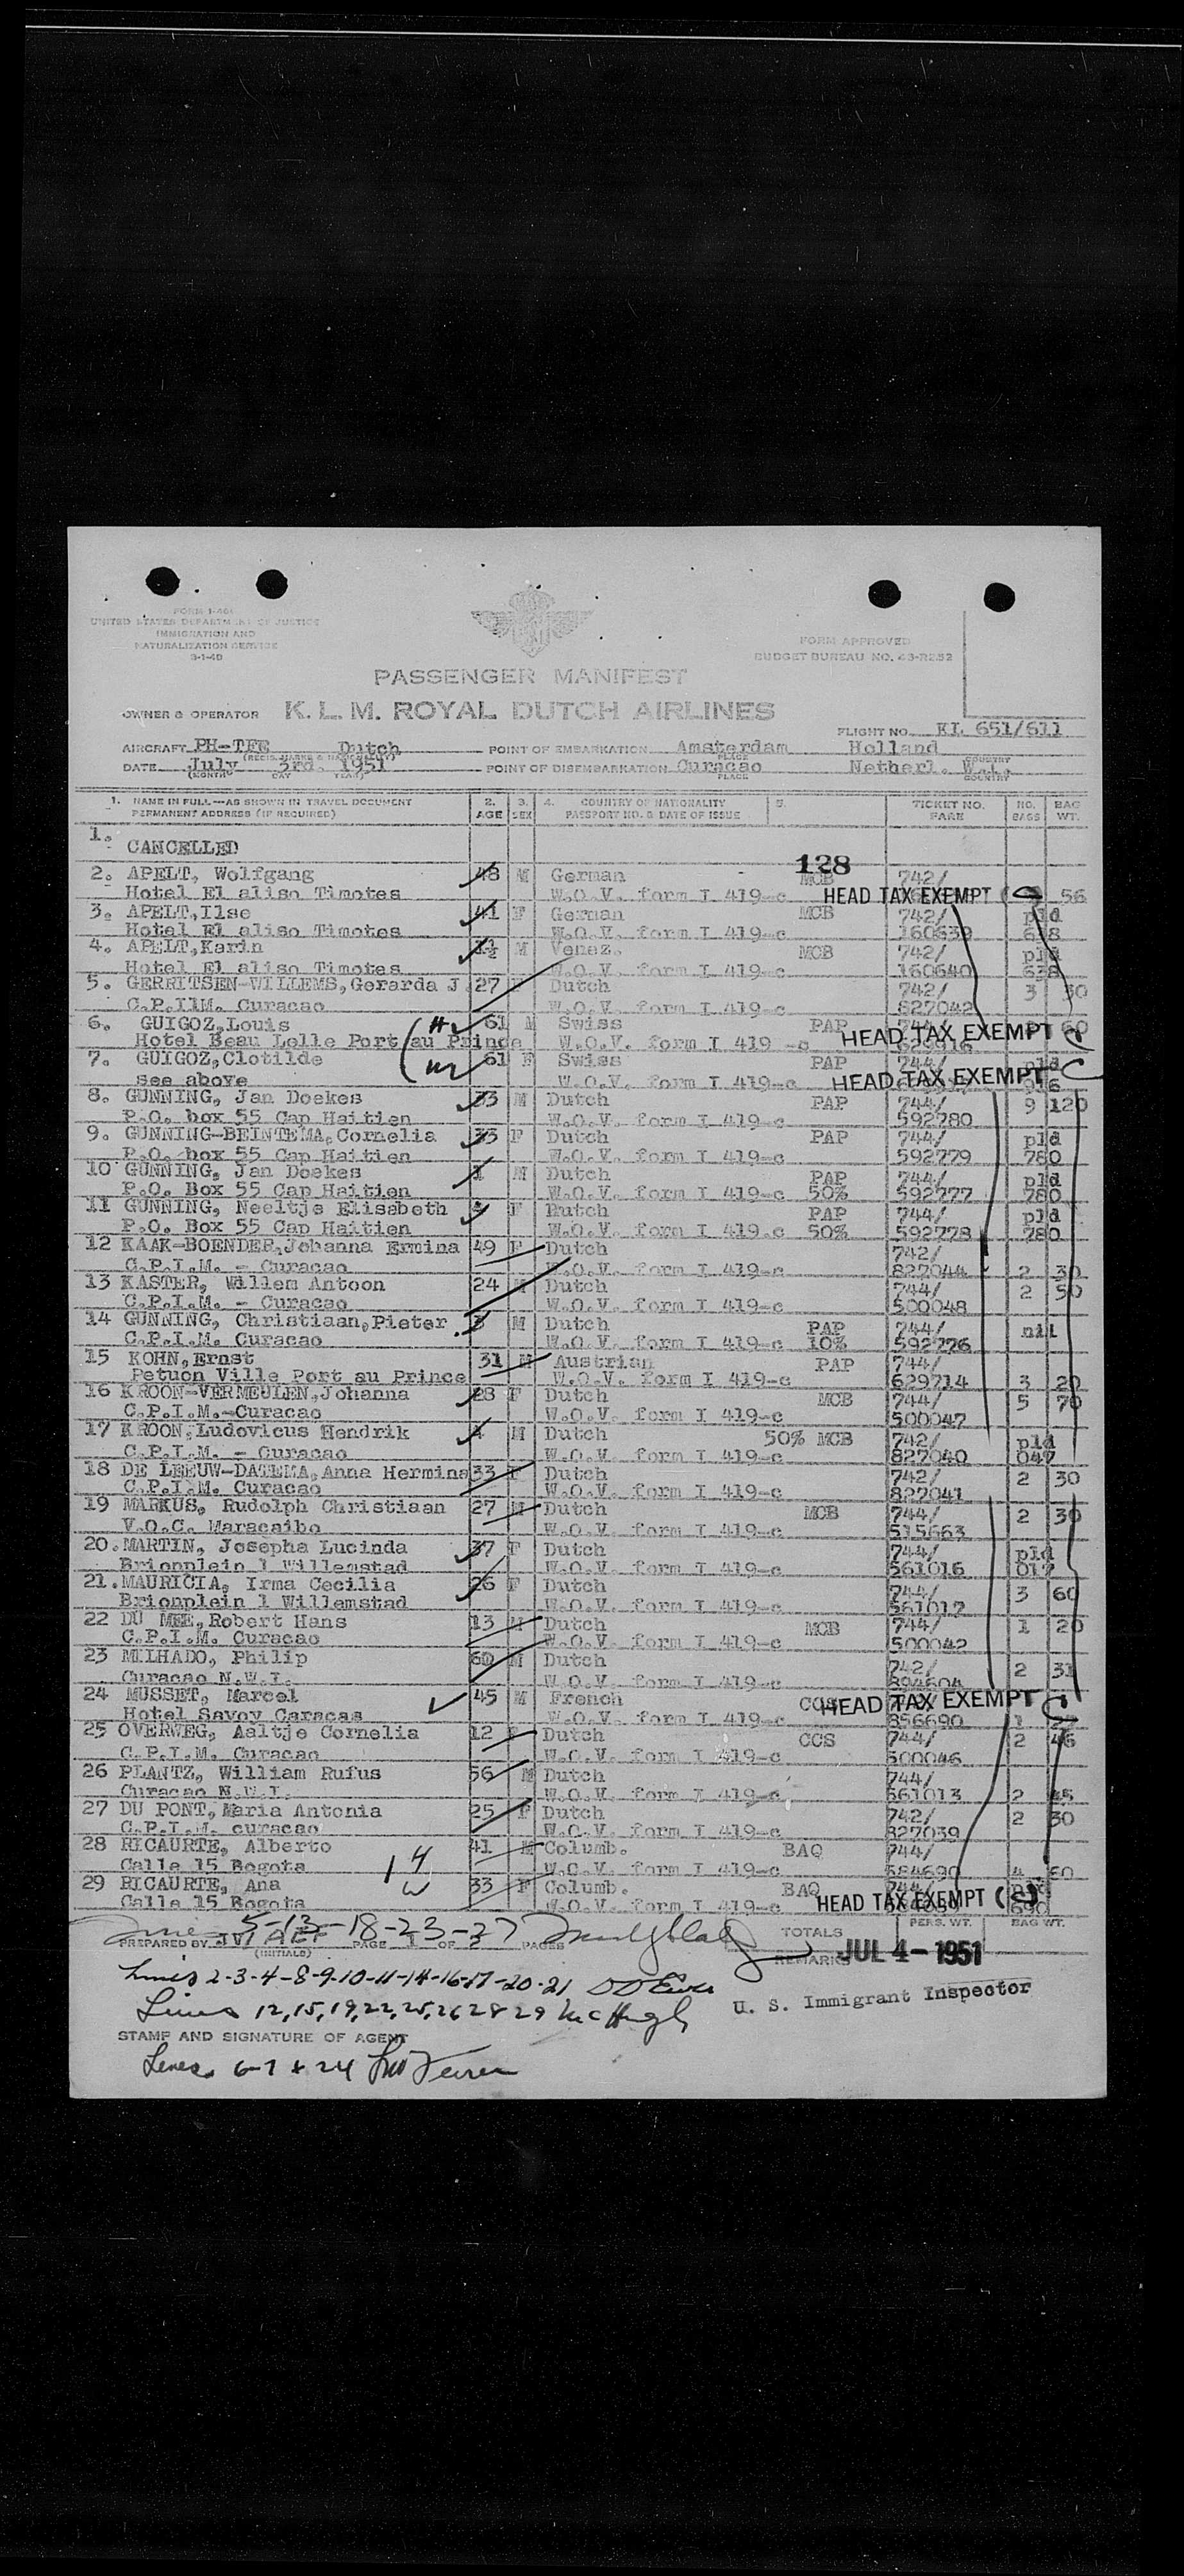 FORM I-404
UNITED STATES DEPARTMENT OF JUSTICE
IMMIGRATION AND
NATURALIZATION SERVICE
FORM APPROVED
BUDGET BUREAU NO. 43-R252
PASSENGER MANIFEST
OWNER & OPERATOR K. L. M. ROYAL DUTCH AIRLINES
FLIGHT NO. KL 651/611
AIRCRAFT PH-TFE Dutch POINT OF EMBARKATION Amsterdam Holland
(REGIS. MARKS & NATIONALITY) PLACE COUNTRY
DATE July 3rd. 1951 POINT OF DISEMBARKATION Curacao Netherl. W.I.
(MONTH) DAY YEAR) PLACE COUNTRY
1. NAME IN FULL—AS SHOWN IN TRAVEL DOCUMENT 2. 3. 4. COUNTRY OF NATIONALITY 5. TICKET NO. NO. BAG
PERMANENT ADDRESS (IF REQUIRED) AGE SEX PASSPORT NO. & DATE OF ISSUE FARE BAGS WT.
1.
CANCELLED
128
2. APELT, Wolfgang 48 M German MCB 742/
Hotel El aliso Timotes W.O.V. form I 419-c HEAD TAX EXEMPT 56
3. APELT,Ilse 41 F German MCB 742/ pld
Hotel El aliso Timotes W.O.V. form I 419-c 160639 638
4. APELT,Karin 1½ M Venez. MCB 742/ pld
Hotel El aliso Timotes W.O.V. form I 419-c 160640 638
5. GERRITSEN-WILLEMS,Gerarda J. 27 F Dutch 742/ 3 30
C.P.IlM. Curacao W.O.V. form I 419-c 827042
6. GUIGOZ,Louis H 61 M Swiss PAP 60
Hotel Beau Lelle Port au Prince W.O.V. form I 419 -c HEAD TAX EXEMPT
7. GUIGOZ,Clotilde W 61 F Swiss PAP 744/ pld
See above W.O.V. form I 419-c HEAD TAX EXEMPT 916
8. GUNNING, Jan Doekes 33 M Dutch PAP 744/ 9 120
P.O. box 55 Cap Haitien W.O.V. form I 419-c 592780
9. GUNNING-BEINTEMA,Cornelia 33 F Dutch PAP 744/ pld
P.O. box 55 Cap Haitien W.O.V. form I 419-c 592779 780
10 GUNNING, Jan Doekes 1 M Dutch PAP 744/ pld
P.O. Box 55 Cap Haitien W.O.V. form I 419-c 50% 592777 780
11 GUNNING, Neeltje Elisabeth F Dutch PAP 744/ pld
P.O. Box 55 Cap Haitien W.O.V. form I 419.c 50% 592778 780
12 KAAK-BOENDER,Johanna Ermina 49 F Dutch 742/
C.P.I.M. - Curacao W.O.V. form I 419-c 827044 2 30
13 KASTER, Willem Antoon 24 M Dutch 744/ 2 50
C.P.I.M. - Curacao W.O.V. form I 419-c 500048
14 GUNNING, Christiaan,Pieter M Dutch PAP 744/ nil
C.P.I.M. Curacao W.O.V. form I 419-c 10% 592776
15 KOHN,Ernst 31 M Austrian PAP 744/
Petuon Ville Port au Prince W.O.V. form I 419-c 629714 3 20
16 KROON-VERMEULEN,Johanna 28 F Dutch MCB 744/ 5 70
C.P.I.M.-Curacao W.O.V. form I 419-c 500047
17 KROON,Ludovicus Hendrik 4 M Dutch 50% MCB 742/ pld
C.P.I.M. - Curacao W.O.V. form I 419-c 827040 047
18 DE LEEUW-DATEMA,Anna Hermina 33 F Dutch 742/ 2 30
C.P.I.M. Curacao W.O.V. form I 419-c 827041
19 MARKUS, Rudolph Christiaan 27 M Dutch MCB 744/ 2 30
V.O.C. Maracaibo W.O.V. form I 419-c 515663
20. MARTIN, Josepha Lucinda 37 F Dutch 744/ pld
Brionplein 1 Willemstad W.O.V. form I 419-c 561016 017
21. MAURICIA, Irma Cecilia 26 F Dutch 744/ 3 60
Brionplein 1 Willemstad W.O.V. form I 419-c 561017
22 DU MEE,Robert Hans 13 M Dutch MCB 744/ 1 20
C.P.I.M. Curacao W.O.V. form I 419-c 500042
23 MILHADO, Philip 60 M Dutch 742/ 2 31
Curacao N.W.I. W.O.V. form I 419-c 894604
24 MUSSET, Marcel 45 M French CCS HEAD TAX EXEMPT
Hotel Savoy Caracas W.O.V. form I 419-c 856690 1
25 OVERWEG, Aaltje Cornelia 12 F Dutch CCS 744/ 2 46
C.P.I.M. Curacao W.O.V. form I 419-c 500046
26 PLANTZ, William Rufus 56 M Dutch 744/
Curacao N.W.I. W.O.V. form I 419-c 561013 2 45
27 DU PONT, Maria Antonia 25 F Dutch 742/ 2 30
C.P.I.M. curacao W.O.V. form I 419-c 827039
28 RICAURTE, Alberto 41 M Columb. BAQ 744/
Calle 15 Bogota H W.O.V. form I 419-c 584690 4 60
29 RICAURTE, Ana W 33 F Columb. BAQ 744/
Calle 15 Bogota W.O.V. form I 419-c HEAD TAX EXEMPT 690
5-13-18-23-27
PREPARED BY PAGE 1 OF 2 PAGES TOTALS PERS. WT. BAG WT.
(INITIALS) REMARKS JUL 4 - 1951
Lines 2-3-4-8-9-10-11-14-16-17-20-21
U. S. Immigrant Inspector
Lines 12,15,19,22,25,26 28 29 McHugh
STAMP AND SIGNATURE OF AGENT
Lines 6-7 + 24